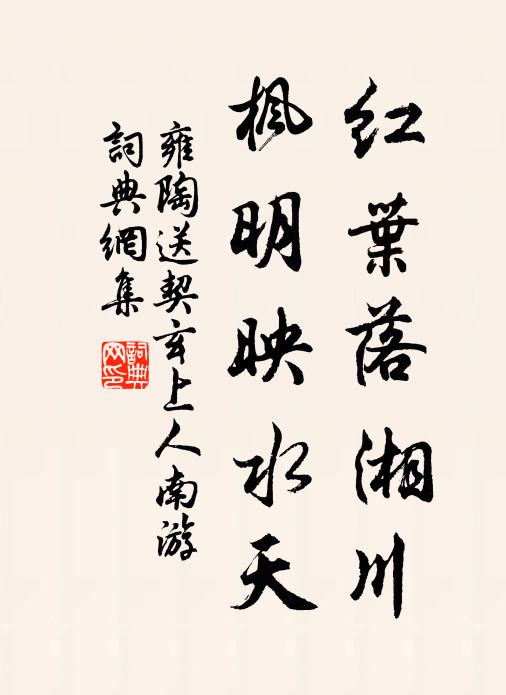 红葉落湘川
枫明映水天
雍陶送契玄上人南游
詞典網集
詞典网印